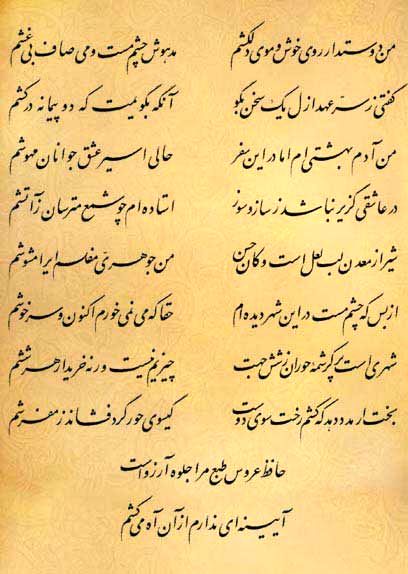 من دوستدار روی خوش و موی دلکشم مدهوش چشم مست و می صاف بی غشم
گفتی ز سرّ عهد ازل یک سخن بگو آنگه بگویمت که دو پیمانه درکشم
من آدم بهشتی ام اما در این سفر حالی اسیر عشق جوانان مهوشم
در عاشقی گزیر نباشد ز ساز و سوز استاده ام چو شمع مترسان ز آتشم
شیراز معدن لب لعل است و کان حسن من جوهریّ مفلسم ایرا مشوشم
از بس که چشم مست در این شهر دیده ام حقا که می نمی خورم اکنون و سرخوشم
شهری است پر کرشمه حوران ز شش جهت چیزیم نیست ورنه خریدار هر ششم
بخت ار مدد دهد که کشم رخت سوی دوست گیسوی حور گرد فشاند ز مفرشم
حافظ عروس طبع مرا جلوه آرزوست
آیینه ای ندارم از آن آه می کشم